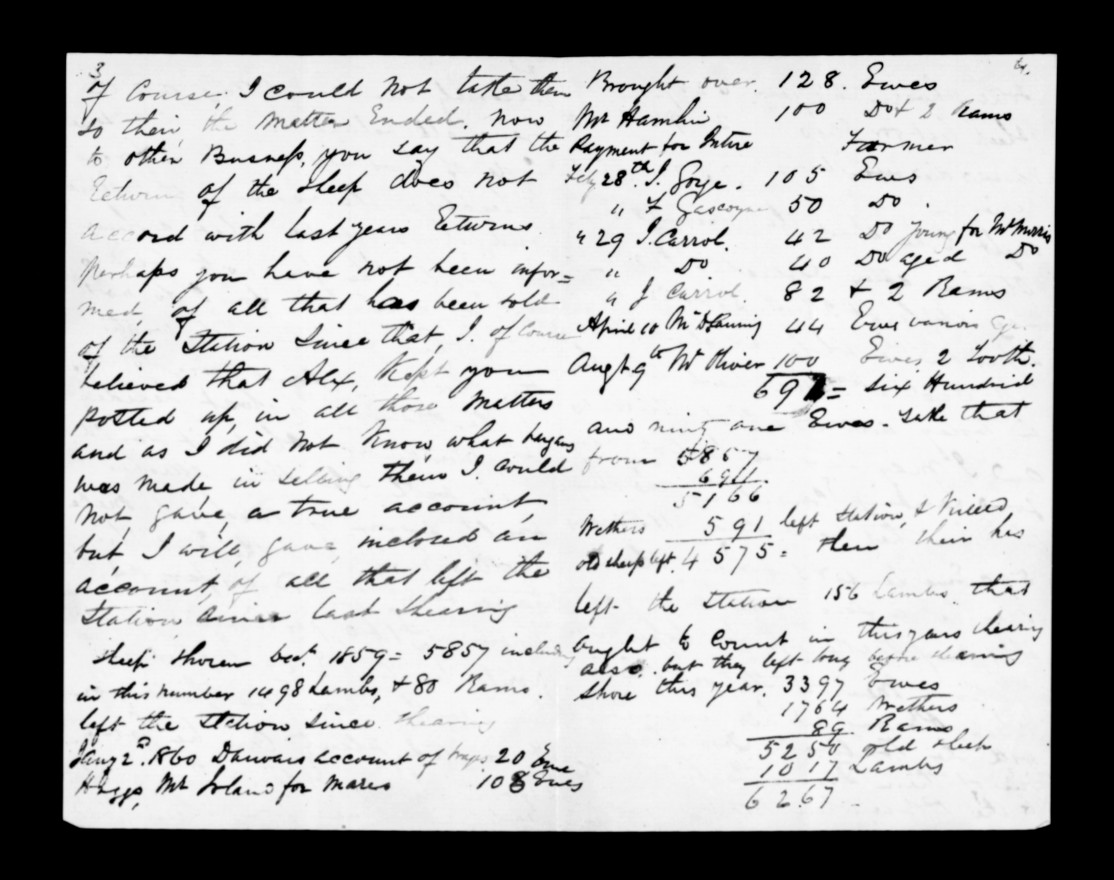 3
of Course, I could not take them
so their the Matter Ended. now
to other Busness, you say that the
Returns of the sheep does not
accord with last years Returns.
Perhaps you have not been infor=
med, of all that has been sold
of the Station Since that, I. of Course
believed that Alex, kept you
posted up, in all those Matters
and as I did not know, what
was made, in selling them I could
not, gave, a true account,
but I will, gave, inclosed an
account, of all that left the
Station since last shearing
Sheep shoren Dect. 1859 = 5857 including
in this number 1498 Lambs, & 80 Rams.
left the Station since shearing
Jany 2d. 1860 account of 20 Ewe
Mr for Mares 108 Ewes
4.
Brought over. 128. Ewes
Mr Hamlin 100 Do & 2 Rams
Payment for Farmer
Feby 28th. J. Goye. 105 Ews
" F Gascoyne 50 Do.
" 29 J. Carrol. 42 Do Young for Mr Morris
" Do 40 Do aged Do
" J Carrol. 82 & 2 Rams
April 10 Mr 44 Ewes variois age
Augt 9th Mr Oliver 100 Ewes, 2 Tooth.
691 = Six Hundrid
and ninty one Ewes. take that
from 5857
691
5166
Wethers 591 left Station, & Killed,
old sheep left 4575 = then their has
left the Station 156 Lambs. that
ought to Count in this years shearing
also. but they left long before shearing
Shore this year. 3397 Ewes
1764 Wethers
89 Rams
5250 old sheep
1017 Lambs
6267